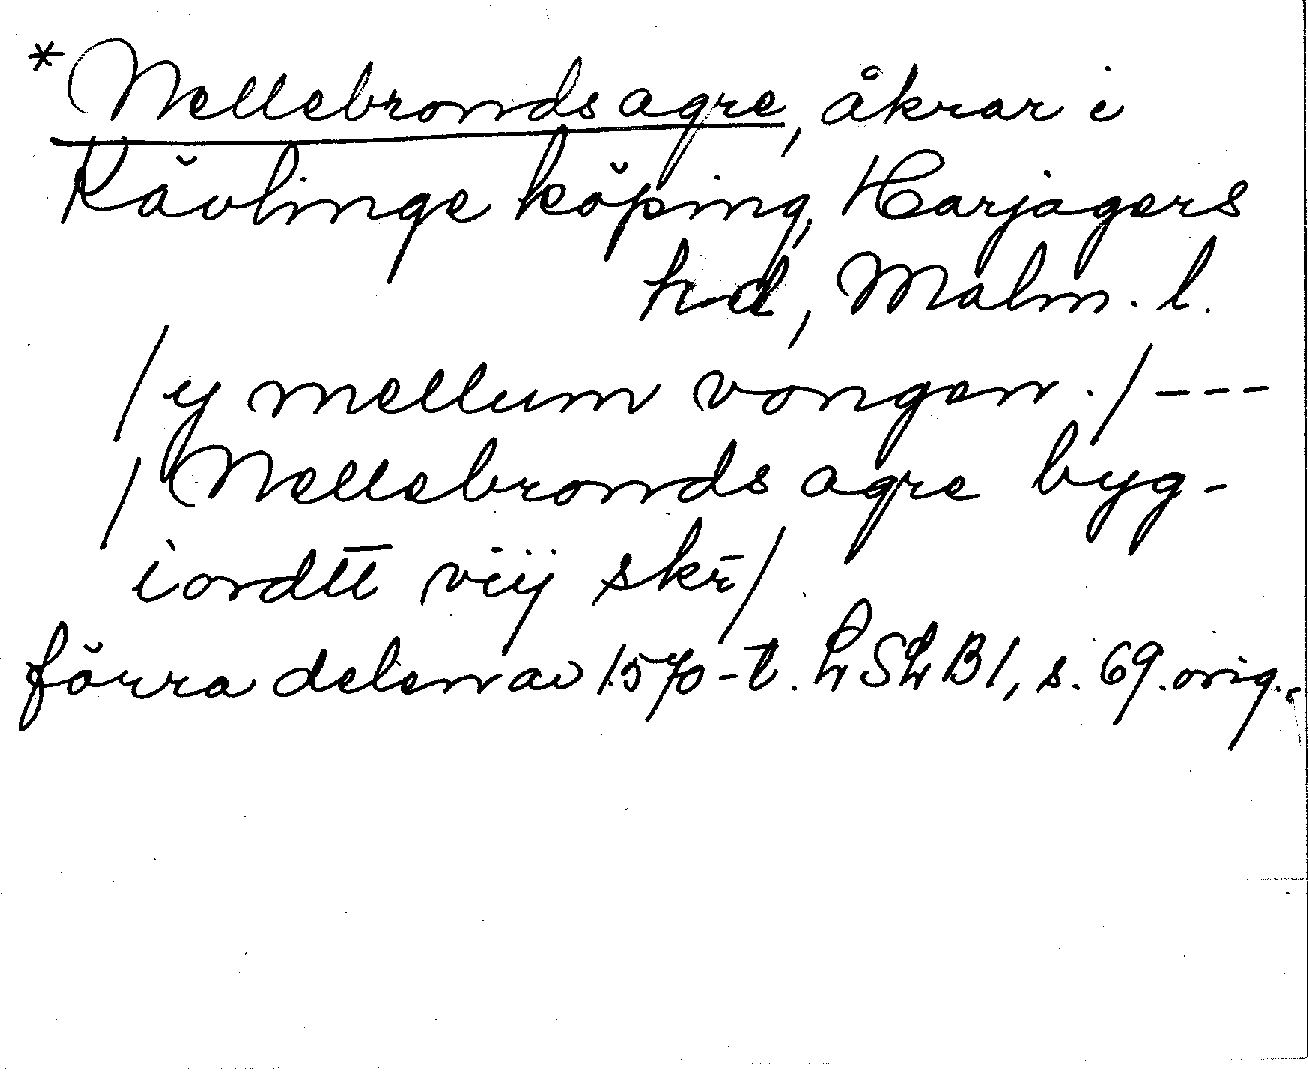 *Nellebrondsagre, åkrar i
Kävlinge köping, Harjagers
hd, Malm. l.
/y mellum vongen./---
/Nellebronds agre byg-
iordtt viij skr̄/
förra delen av 1570-t. LSLB1, s. 69. orig.